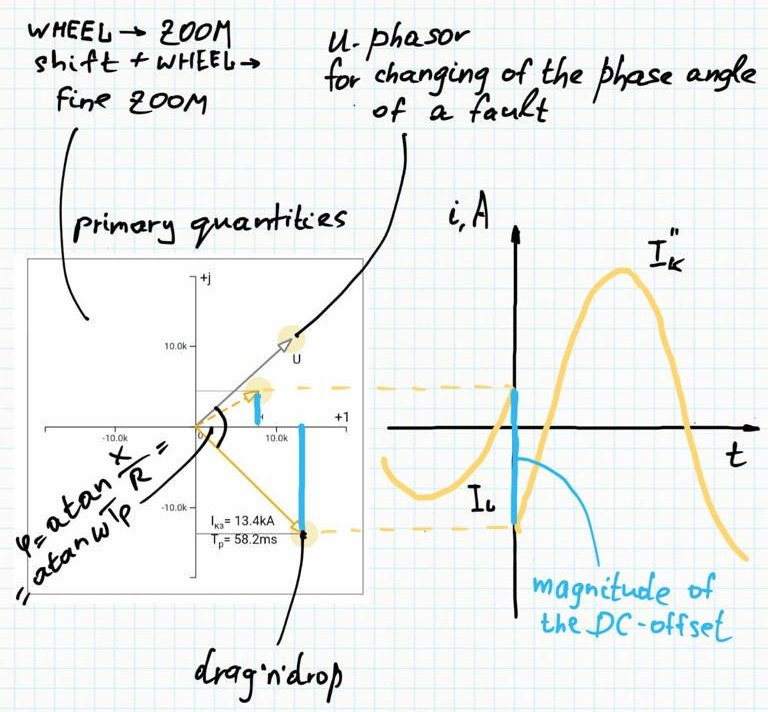 WHEEL → ZOOM
shift + WHEEL →
fine ZOOM
u-phasor
for changing of the phase angle
of a fault
primary quantities
i, A
I"K
+j
10.0k
U
+1
-10.0k
0
10.0k
t
φ = atan X/R =
= atan ω Tp
-10.0k
IL
Iк3 = 13.4kA
Tp = 58.2ms
magnitude of
the DC-offset
drag'n'drop